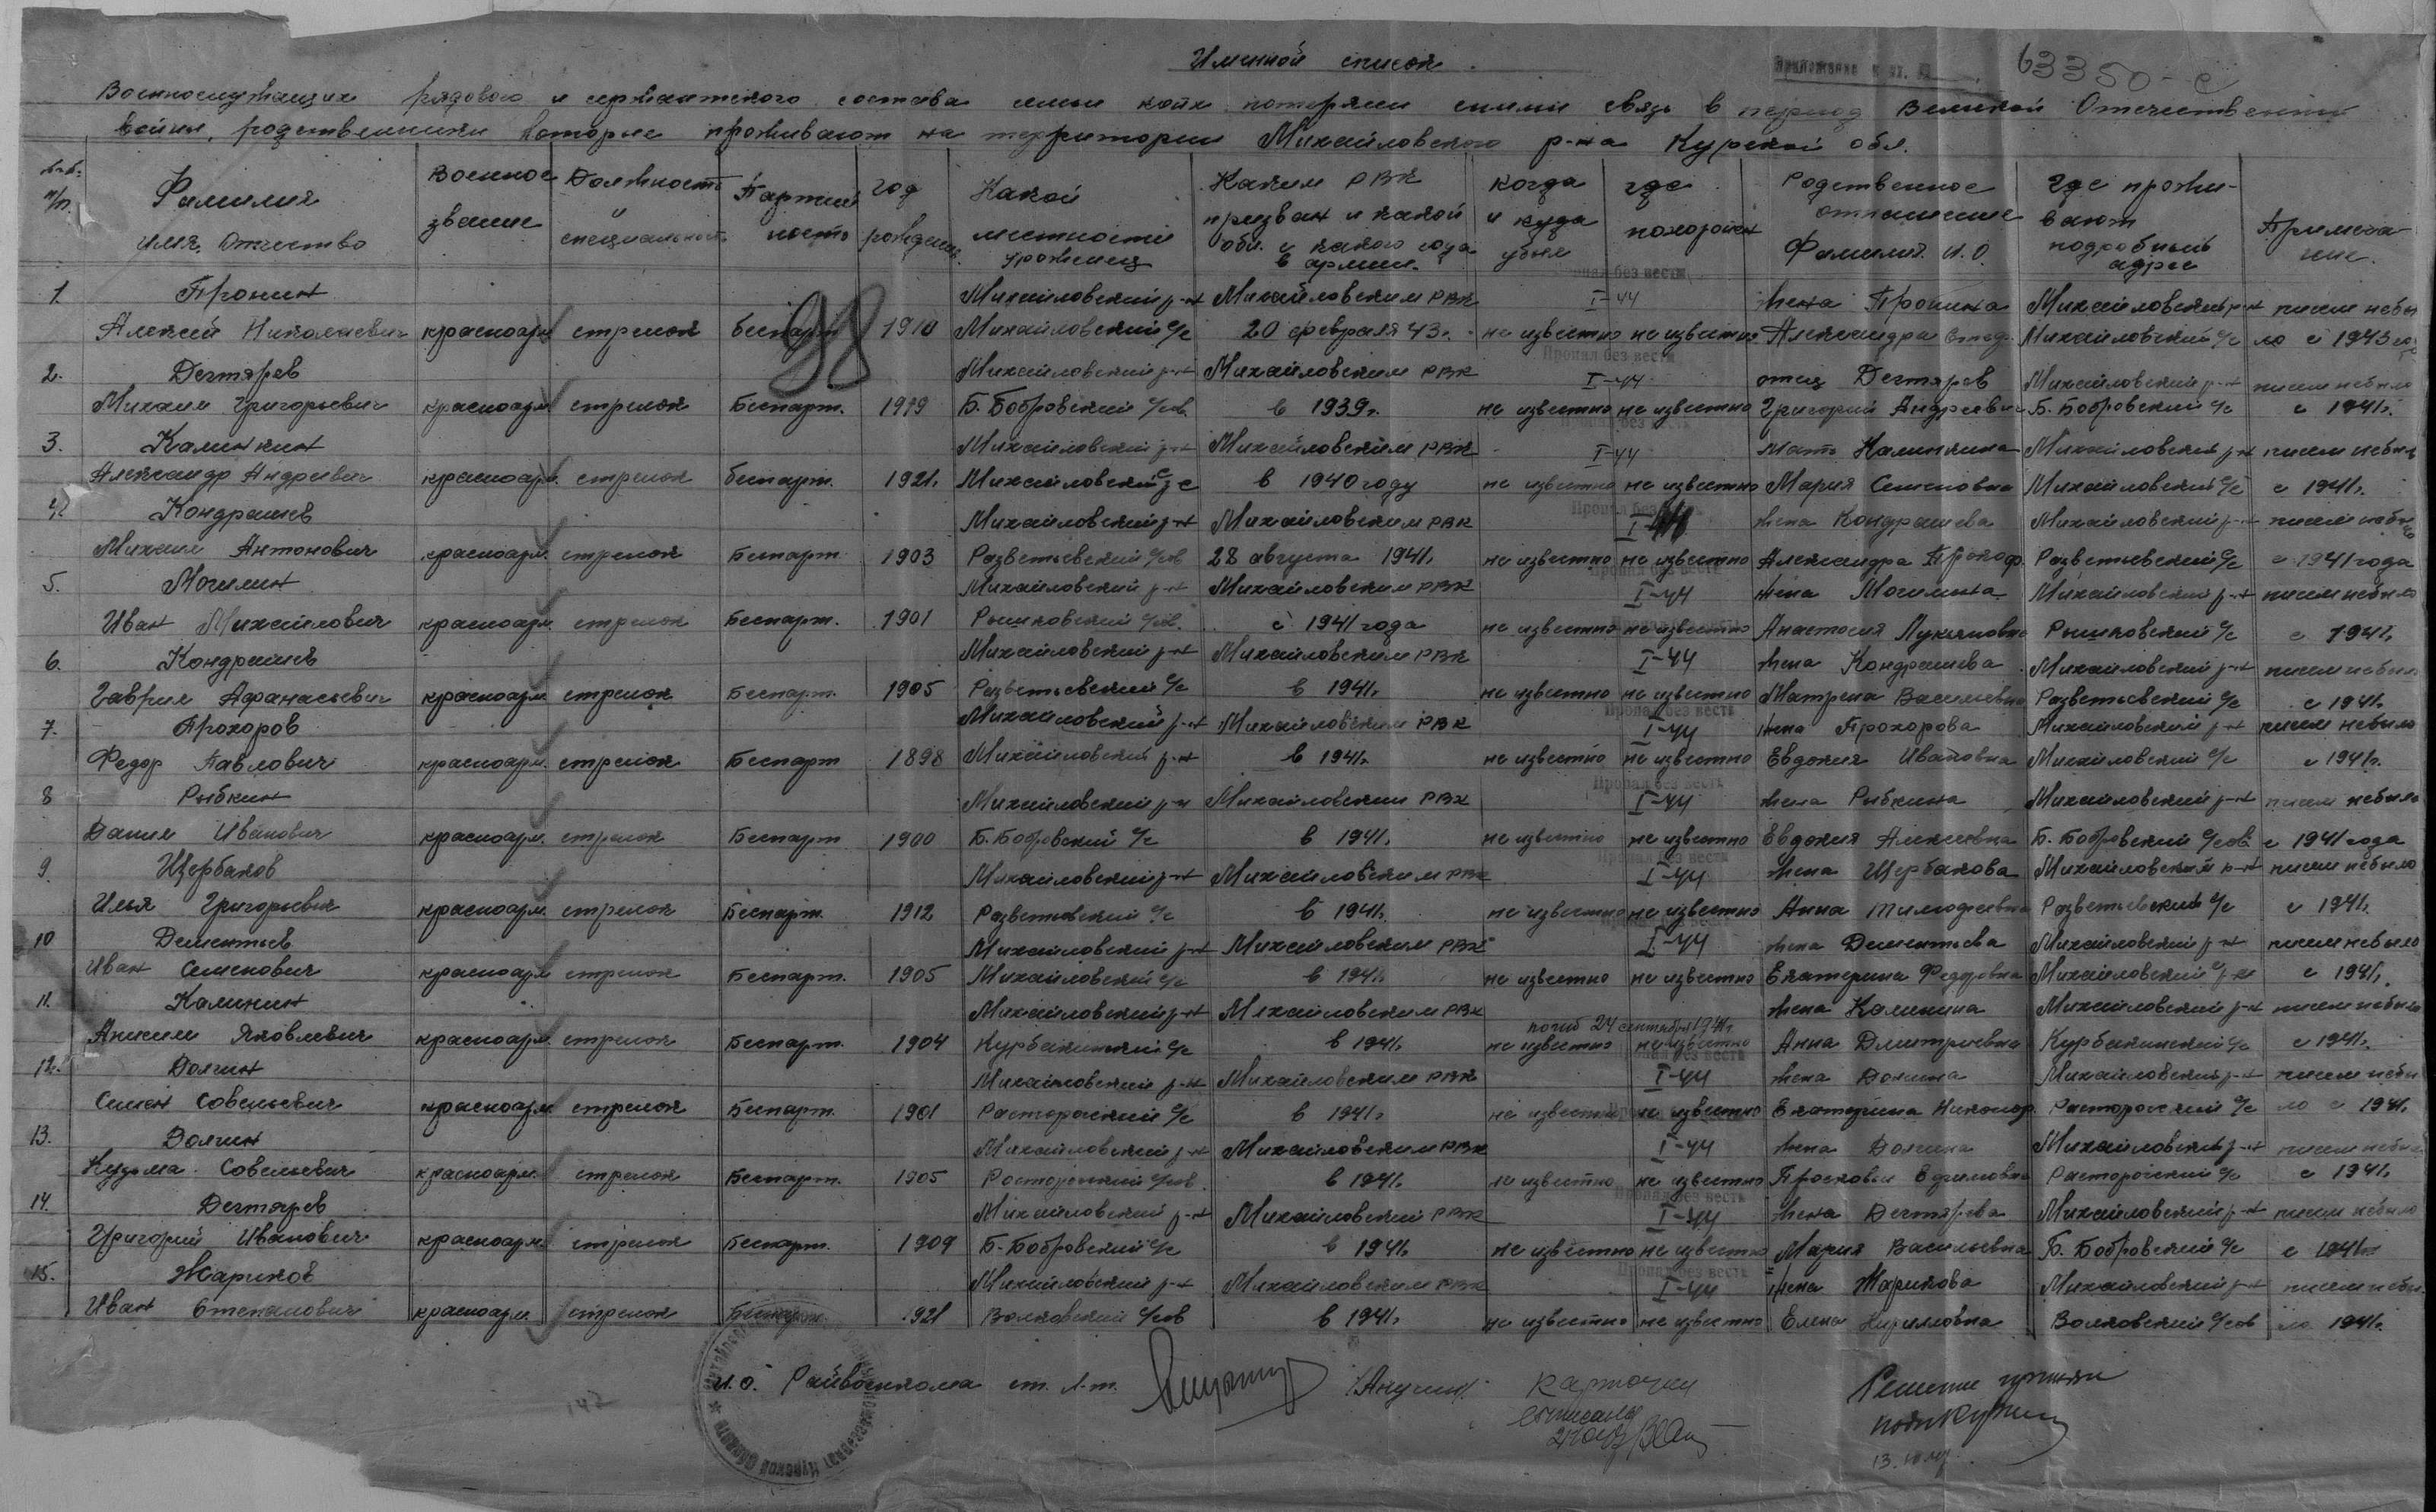 Именной список.
63350-с
Военнослужащих рядового и сержантского состава семьи коих потеряли с ними связь в период Великой Отечественной
войны, родственники которые проживают на территории Михайловского р-на Курской обл.
п/п. Фамилия имя, Отчество Военное звание Должность и специальность Партийность год рождения Какой местности уроженец Каким РВК призван и какой обл. и какого года в армии. когда и куда убыл где похоронен Родственное отношение Фамилия. И.О. где проживают подробный адрес Примечание.
1. Пронин Михайловский р-н Михайловским РВК Пропал без вести I-44 жена Пронина Михайловский р-н писем небы
Алексей Николаевич красноарм. стрелок беспарт 1910 Михайловский с/с 20 февраля 43г. не известно не известно Александра Михайловский с/с ло с 1943
98
2. Дегтярев Михайловский р-н Михайловским РВК Пропал без вести I-44 отец Дегтярев Михайловский р-н писем небыло
Михаил Григорьевич красноарм. стрелок Беспарт. 1919 Б. Бобровский с/сов. в 1939г. не известно не известно Григорий Андреевич Б. Бобровский с/с с 1941г.
3. Калинкин Михайловский р-н Михайловским РВК Пропал без вести I-44 мать Калинкина Михайловский р-н писем небыло
Александр Андреевич красноарм. стрелок беспарт. 1921г. Михайловский с/с в 1940 году не известно не известно Мария Семеновна Михайловский с/с с 1941г.
4. Кондрашев Михайловский р-н Михайловским РВК Пропал без вести I-44 жена Кондрашева Михайловский р-н писем небыло
Михаил Антонович красноарм. стрелок Беспарт. 1903 Разветьевский с/сов 28 августа 1941г. не известно не известно Александра Прокоф. Разветьевский с/с с 1941 года
5. Могилин Михайловский р-н Михайловским РВК Пропал без вести I-44 жена Могилина Михайловский р-н писем небыло
Иван Михайлович красноарм. стрелок Беспарт. 1901 Рышковский с/сов. с 1941 года не известно не известно Анастасия Лукьяновна Рышковский с/с с 1941г.
6. Кондрашев Михайловский р-н Михайловским РВК Пропал без вести I-44 жена Кондрашева Михайловский р-н писем небыло
Гаврил Афанасьевич красноарм. стрелок Беспарт. 1905 Разветьевский с/с в 1941г. не известно не известно Матрена Васильевна Разветьевский с/с с 1941г.
7. Прохоров Михайловский р-н Михайловским РВК Пропал без вести I-44 жена Прохорова Михайловский р-н писем небыло
Федор Павлович красноарм. стрелок Беспарт 1898 Михайловский р-н в 1941г. не известно не известно Евдокия Ивановна Михайловский с/с с 1941г.
8 Рыбкин Михайловский р-н Михайловским РВК Пропал без вести I-44 жена Рыбкина Михайловский р-н писем небыло
Данил Иванович красноарм. стрелок Беспарт 1900 Б. Бобровский с/с в 1941г. не известно не известно Евдокия Алексеевна Б. Бобровский с/сов. с 1941 года
9. Щербаков Михайловский р-н Михайловским РВК Пропал без вести I-44 жена Щербакова Михайловский р-н писем небыло
Илья Григорьевич красноарм. стрелок Беспарт. 1912 Разветьевский с/с в 1941г. не известно не известно Анна Тимофеевна Разветьевский с/с с 1941г.
10 Дементьев Михайловский р-н Михайловским РВК Пропал без вести I-44 жена Дементьева Михайловский р-н писем небыло
Иван Семенович красноарм. стрелок Беспарт. 1905 Михайловский с/с в 1941г. не известно не известно Екатерина Федоровна Михайловский с 1941г.
11. Калинин Михайловский р-н Михайловским РВК жена Калинина Михайловский р-н писем небыло
погиб 24 сентября 1941г.
Анисим Яковлевич красноарм. стрелок Беспарт. 1904 Курбакинский с/с в 1941г. не известно не известно Анна Дмитриевна Курбакинский с/с с 1941г.
12. Долгин Михайловский р-н Михайловским РВК Пропал без вести I-44 жена Долгина Михайловский р-н писем небы
Семен Савельевич красноарм. стрелок Беспарт. 1901 с/с в 1941г. не известно не известно Екатерина с/с ло с 1941г.
13. Долгин Михайловский р-н Михайловским РВК Пропал без вести I-44 жена Долгина Михайловский р-н писем небыло
Кузьма Савельевич красноарм. стрелок Беспарт. 1905 с/сов. в 1941г. не известно не известно Прасковья Ефимовна с/с с 1941г.
14. Дегтярев Михайловский р-н Михайловский РВК Пропал без вести I-44 жена Дегтярева Михайловский р-н писем небыло
Григорий Иванович красноарм. стрелок Беспарт. 1909 Б. Бобровский с/с в 1941г. не известно не известно Мария Васильевна Б. Бобровский с/с с 1941г.
15. Жариков Михайловский р-н Михайловским РВК Пропал без вести I-44 жена Жарикова Михайловский р-н писем небы
Иван Степанович красноарм. стрелок Беспарт. 1921 Волковский с/сов в 1941г. не известно не известно Елена Кирилловна Волковский с/сов ло 1941г.
И.О. Райвоенкома ст. л-т. /Анучин/
Карточки
списаны
Решение принял
142